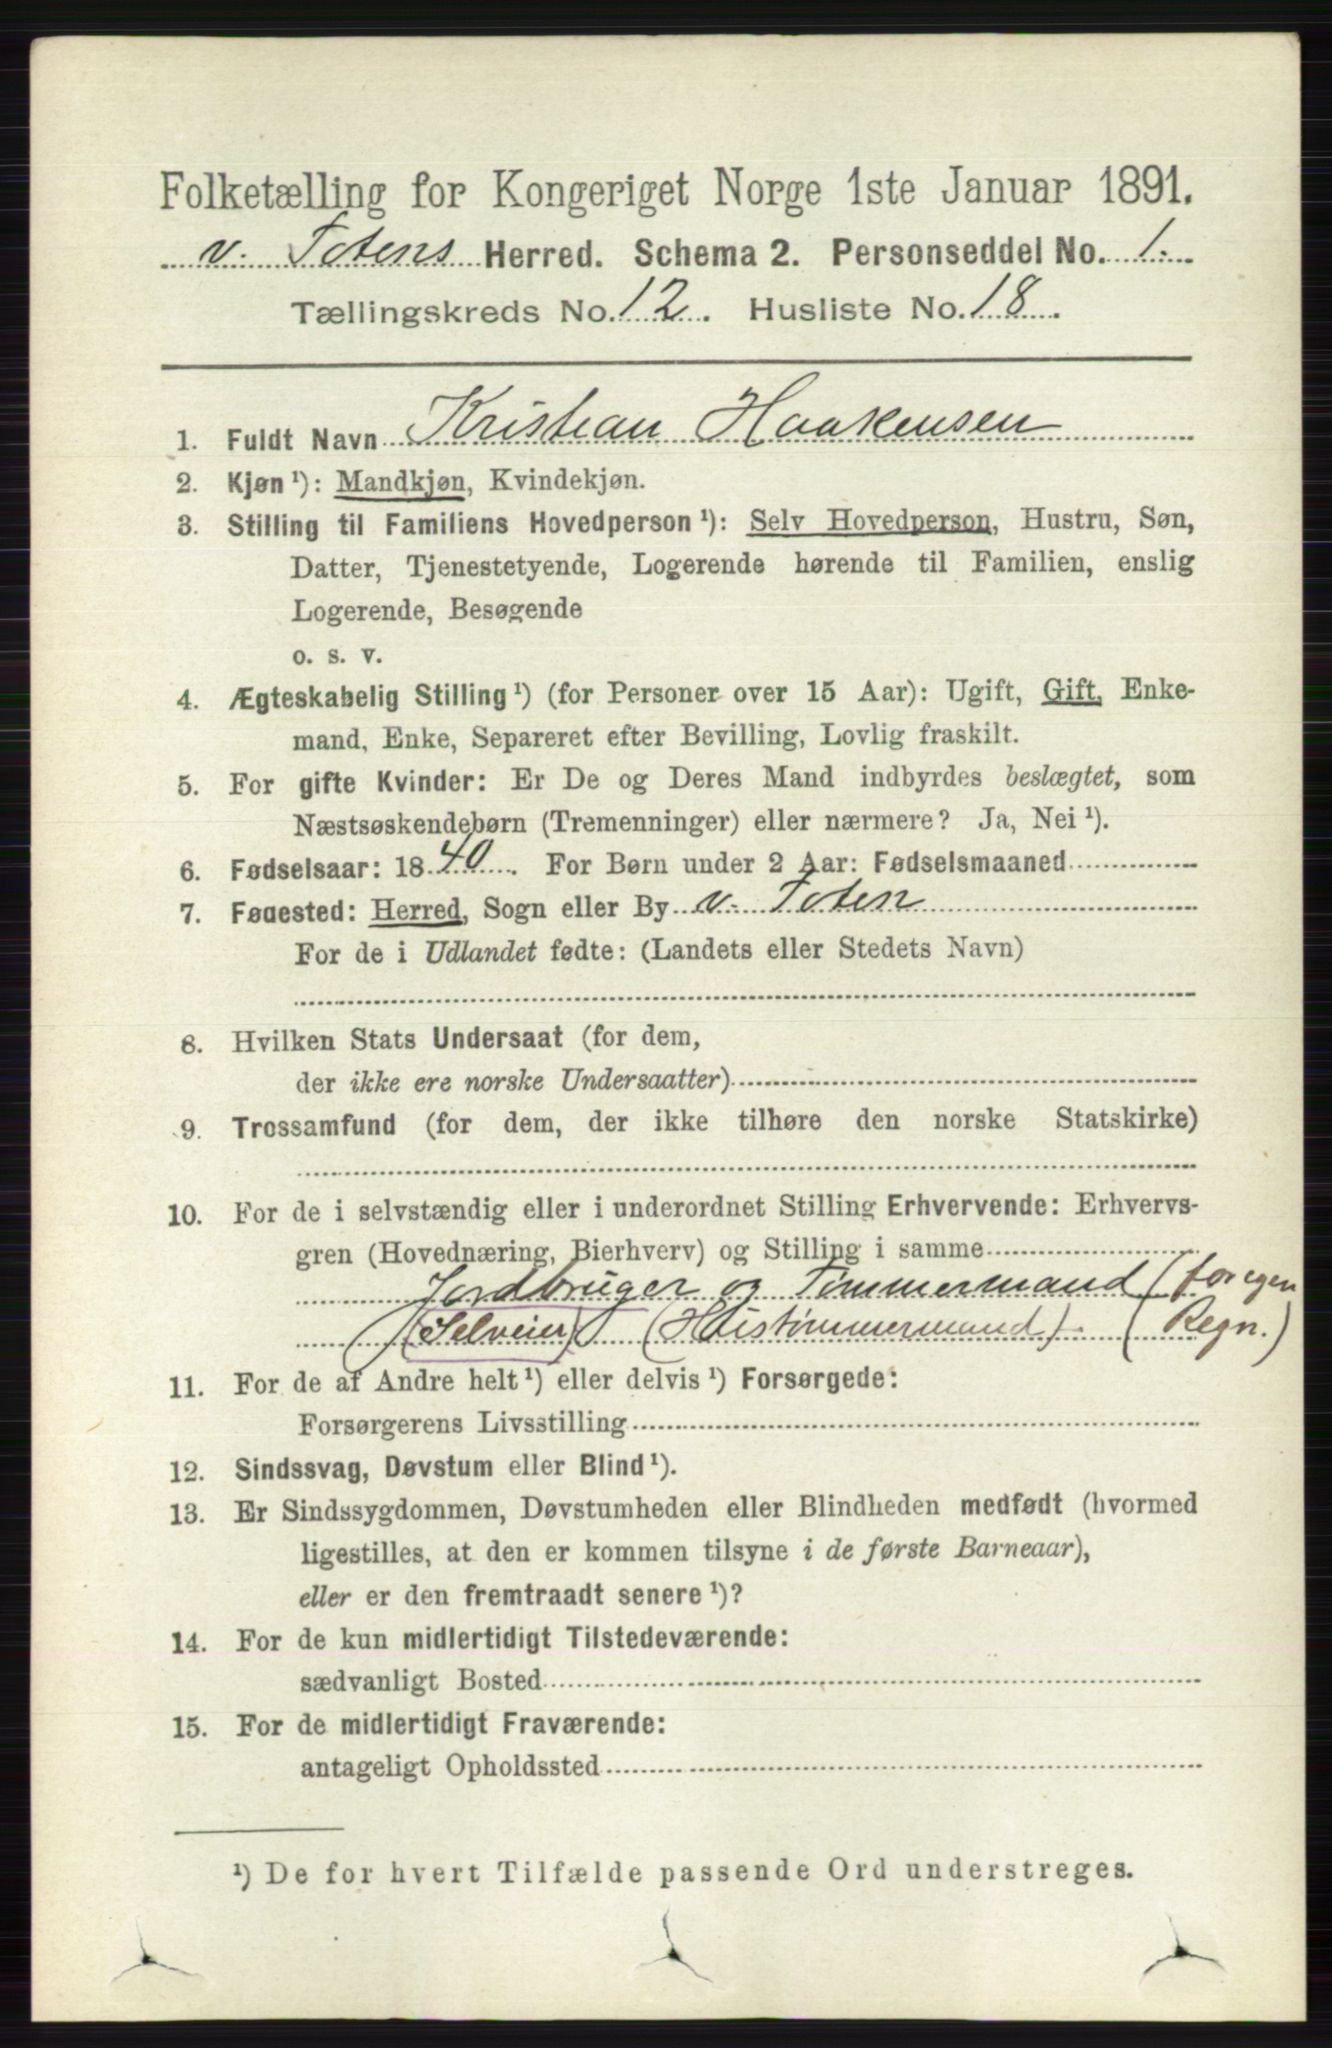 Folketælling for Kongeriget Norge 1ste Januar 1891.
v. Totens Herred. Schema 2. Personseddel No. 1.
Tællingskreds No. 12. Husliste No. 18.
1. Fuldt Navn Kristian Haakensen
2. Kjøn ¹): Mandkjøn, Kvindekjøn.
3. Stilling til Familiens Hovedperson ¹): Selv Hovedperson, Hustru, Søn,
Datter, Tjenestetyende, Logerende hørende til Familien, enslig
Logerende, Besøgende
o. s. v.
4. Ægteskabelig Stilling ¹) (for Personer over 15 Aar): Ugift, Gift, Enke-
mand, Enke, Separeret efter Bevilling, Lovlig fraskilt.
5. For gifte Kvinder: Er De og Deres Mand indbyrdes beslægtet, som
Næstsøskendebørn (Tremenninger) eller nærmere? Ja, Nei ¹).
6. Fødselsaar: 1840. For Børn under 2 Aar: Fødselsmaaned
7. Fødested: Herred, Sogn eller By v. Toten
For de i Udlandet fødte: (Landets eller Stedets Navn)
8. Hvilken Stats Undersaat (for dem,
der ikke ere norske Undersaatter)
9. Trossamfund (for dem, der ikke tilhøre den norske Statskirke)
10. For de i selvstændig eller i underordnet Stilling Erhvervende: Erhvervs-
gren (Hovednæring, Bierhverv) og Stilling i samme
Jordbruger og Tømmermand (for egen
(Selveier) (Hustømmermand). (Regn.)
11. For de af Andre helt ¹) eller delvis ¹) Forsørgede:
Forsørgerens Livsstilling
12. Sindssvag, Døvstum eller Blind ¹).
13. Er Sindssygdommen, Døvstumheden eller Blindheden medfødt (hvormed
ligestilles, at den er kommen tilsyne i de første Barneaar),
eller er den fremtraadt senere ¹)?
14. For de kun midlertidigt Tilstedeværende:
sædvanligt Bosted
15. For de midlertidigt Fraværende:
antageligt Opholdssted
¹) De for hvert Tilfælde passende Ord understreges.